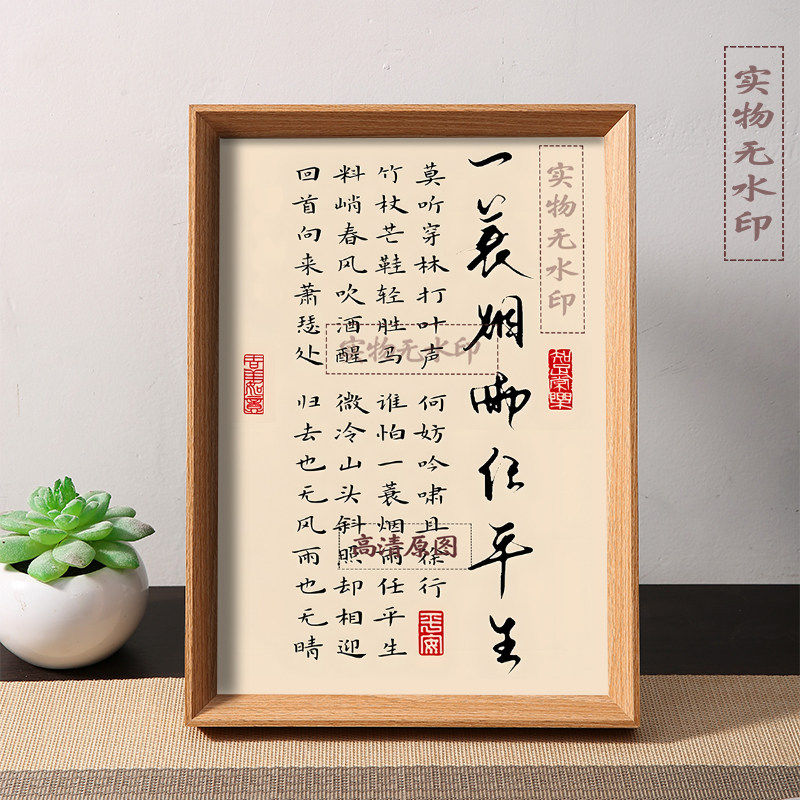 实物无水印
实物无水印
一蓑烟雨任平生
知足常乐
莫听穿林打叶声 何妨吟啸且徐行
竹杖芒鞋轻胜马 谁怕一蓑烟雨任平生
料峭春风吹酒醒 微冷山头斜照却相迎
回首向来萧瑟处 归去也无风雨也无晴
平安
实物无水印
高清原图